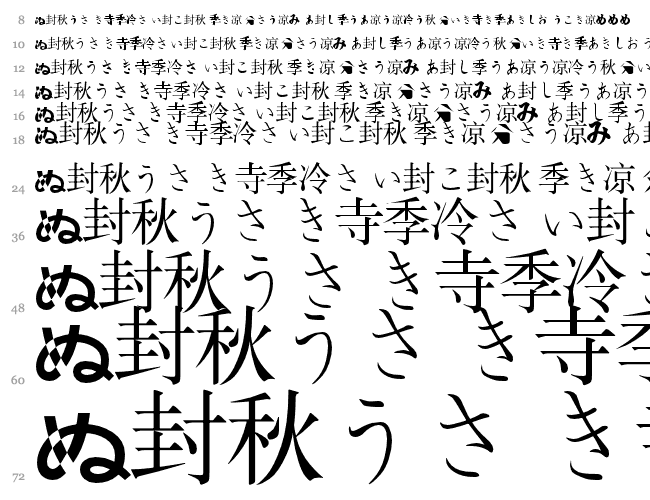 8 ぬ封秋うさ き寺季冷さ い封こ封秋 季き凉 さう凉み あ封し季うあ凉う凉冷う秋 いき寺き季あきしお うこき凉めめめ
10 ぬ封秋うさ き寺季冷さ い封こ封秋 季き凉 さう凉み あ封し季うあ凉う凉冷う秋 いき寺き季あきしお う
12 ぬ封秋うさ き寺季冷さ い封こ封秋 季き凉 さう凉み あ封し季うあ凉う凉冷う秋 い
14 ぬ封秋うさ き寺季冷さ い封こ封秋 季き凉 さう凉み あ封し季うあ凉う
16 ぬ封秋うさ き寺季冷さ い封こ封秋 季き凉 さう凉み あ封し季う
18 ぬ封秋うさ き寺季冷さ い封こ封秋 季き凉 さう凉み あ封
24 ぬ封秋うさ き寺季冷さ い封こ封秋 季き凉
36 ぬ封秋うさ き寺季冷さ い封
48 ぬ封秋うさ き寺季冷
60 ぬ封秋うさ き寺季
72 ぬ封秋うさ き